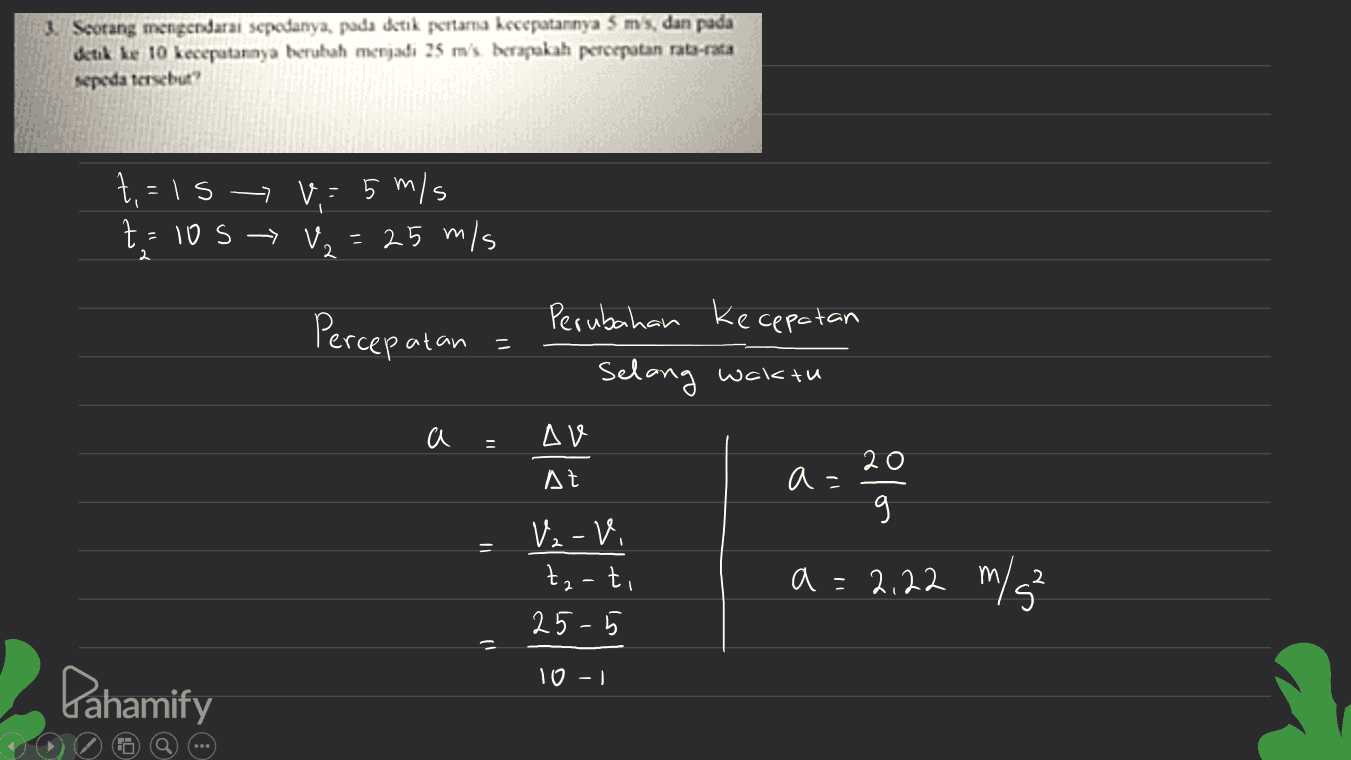 3. Seorang mengendarai sepedanya, pada detik pertama kecepatannya 5 m/s, dan pada
detik ke 10 kecepatannya berubah menjadi 25 m/s. berapakah percepatan rata-rata
sepeda tersebut?
t₁ = 1 s → v₁ = 5 m/s
t₂ = 10 s → v₂ = 25 m/s
Percepatan = Perubahan Kecepatan
Selang waktu
a = Δv
Δt
= v₂ - v₁
t₂ - t₁
= 25 - 5
10 - 1
a = 20
9
a = 2,22 m/s²
Pahamify